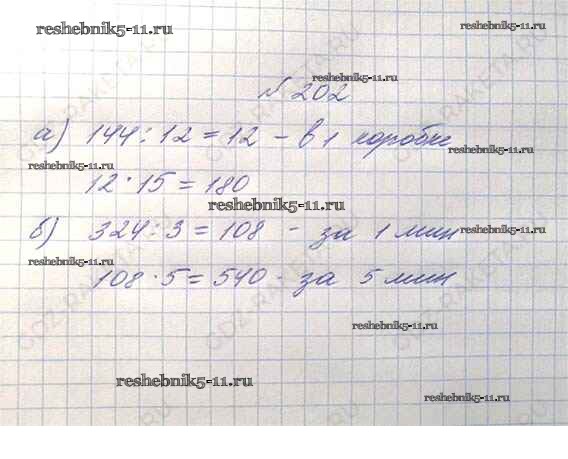 reshebnik5-11.ru
reshebnik5-11.ru
reshebnik5-11.ru
№ 202
а) 144 : 12 = 12 – в 1 коробке
reshebnik5-11.ru
reshebnik5-11.ru
12 · 15 = 180
reshebnik5-11.ru
б) 324 : 3 = 108 - за 1 мин
reshebnik5-11.ru
reshebnik5-11.ru
108 · 5 = 540 - за 5 мин
reshebnik5-11.ru
reshebnik5-11.ru
reshebnik5-11.ru
reshebnik5-11.ru